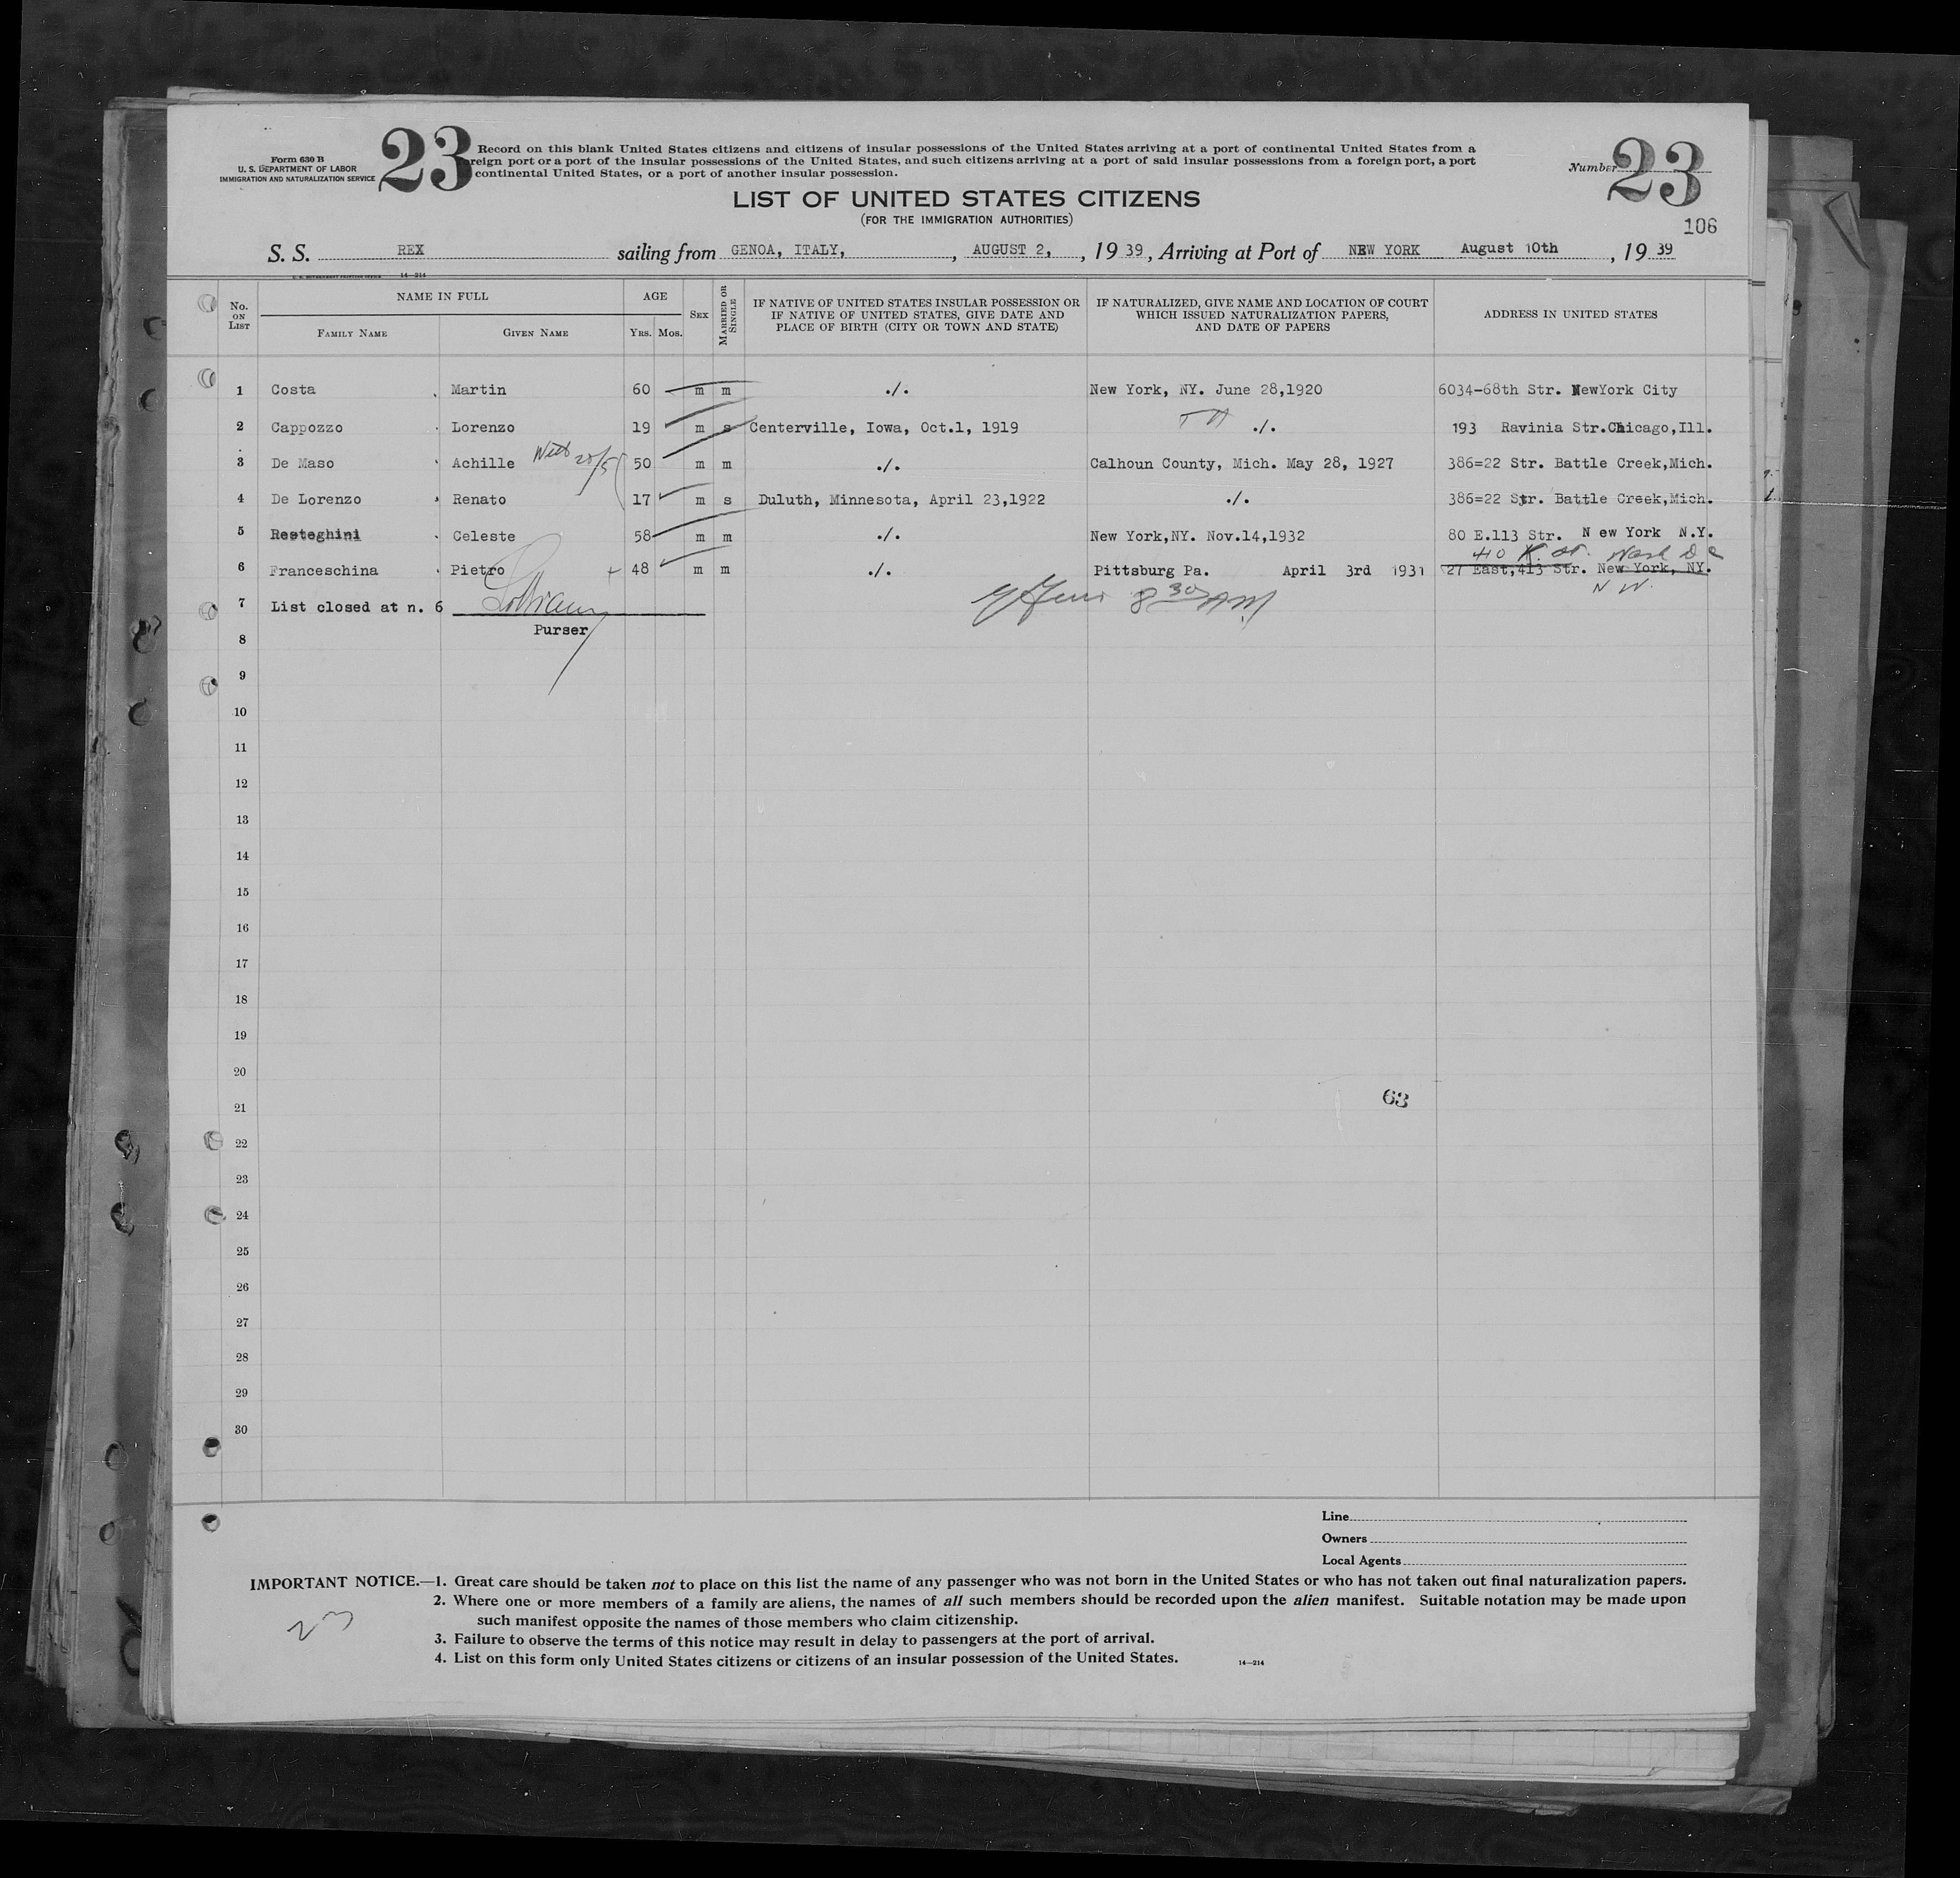 Form 630 B
U. S. DEPARTMENT OF LABOR
IMMIGRATION AND NATURALIZATION SERVICE
23
Record on this blank United States citizens and citizens of insular possessions of the United States arriving at a port of continental United States from a
reign port or a port of the insular possessions of the United States, and such citizens arriving at a port of said insular possessions from a foreign port, a port
continental United States, or a port of another insular possession.
Number 23
106
LIST OF UNITED STATES CITIZENS
(FOR THE IMMIGRATION AUTHORITIES)
S. S. REX sailing from GENOA, ITALY, , AUGUST 2, , 19 39 , Arriving at Port of NEW YORK August 10th , 19 39
U. S. GOVERNMENT PRINTING OFFICE 14—214
No. ON LIST NAME IN FULL AGE SEX MARRIED OR SINGLE IF NATIVE OF UNITED STATES INSULAR POSSESSION OR IF NATIVE OF UNITED STATES, GIVE DATE AND PLACE OF BIRTH (CITY OR TOWN AND STATE) IF NATURALIZED, GIVE NAME AND LOCATION OF COURT WHICH ISSUED NATURALIZATION PAPERS, AND DATE OF PAPERS ADDRESS IN UNITED STATES
FAMILY NAME GIVEN NAME YRS. MOS.
1 Costa Martin 60 m m ./. New York, NY. June 28,1920 6034-68th Str. NewYork City
2 Cappozzo Lorenzo 19 m s Centerville, Iowa, Oct.1, 1919 ./. 193 Ravinia Str.Chicago,Ill.
3 De Maso Achille 50 m m ./. Calhoun County, Mich. May 28, 1927 386=22 Str. Battle Creek,Mich.
4 De Lorenzo Renato 17 m s Duluth, Minnesota, April 23,1922 ./. 386=22 Str. Battle Creek,Mich.
5 Resteghini Celeste 58 m m ./. New York,NY. Nov.14,1932 80 E.113 Str. N ew York N.Y.
40 K. St. Wash D C
6 Franceschina Pietro + 48 m m ./. Pittsburg Pa. April 3rd 1931 27 East,413 Str. New York, NY.
N W.
7 List closed at n. 6
8 30 AM
Purser
8
9
10
11
12
13
14
15
16
17
18
19
20
21
63
22
23
24
25
26
27
28
29
30
Line
Owners
Local Agents
IMPORTANT NOTICE.—1. Great care should be taken not to place on this list the name of any passenger who was not born in the United States or who has not taken out final naturalization papers.
2. Where one or more members of a family are aliens, the names of all such members should be recorded upon the alien manifest. Suitable notation may be made upon
such manifest opposite the names of those members who claim citizenship.
23
3. Failure to observe the terms of this notice may result in delay to passengers at the port of arrival.
4. List on this form only United States citizens or citizens of an insular possession of the United States. 14—214